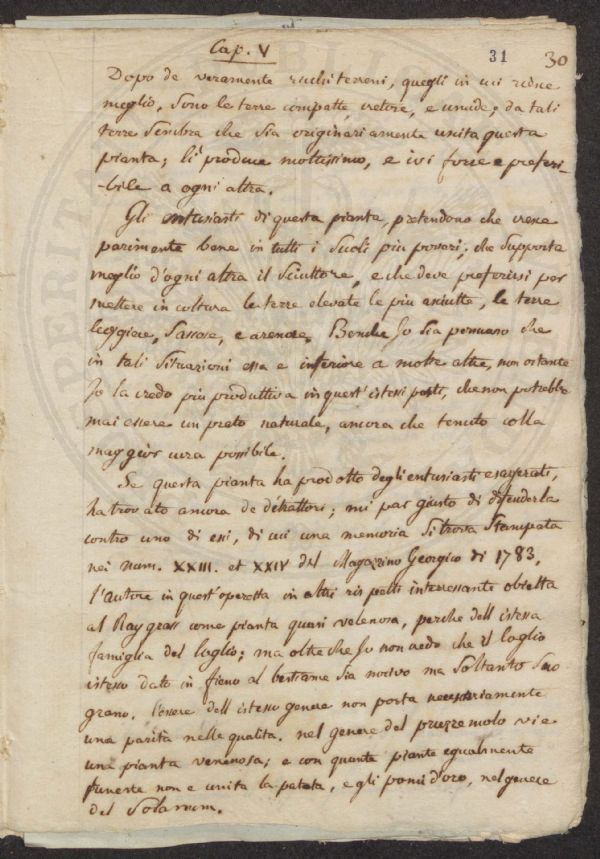 Cap. V
31 30
Dopo de veramente ricchi terreni, quegli in cui riesce
meglio, sono le terre compatte, cretose, e umide; da tali
terre sembra che sia originariamente uscita questa
pianta; lì produce moltissimo, e ivi forse e preferi-
-bile a ogni altra.
Gli entusiasti di questa pianta, pretendono che cresce
parimente bene in tutti i suoli piu poveri; che supporta
meglio d'ogni altra il sciuttore, e che deve preferirsi per
mettere in coltura le terre elevate le piu asciutte, le terre
leggiere, sassose, e arenose, Benche Io sia persuaso che
in tali situazioni essa e inferiore a molte altre, non ostante
Io la credo piu produttiva in quest'istessi posti, che non potrebbe
mai essere un prato naturale, ancora che tenuto colla
maggior cura possibile.
Se questa pianta ha prodotto degli entusiasti esagerati,
ha trovato ancora de détrattori; mi par giusto di difenderla
contro uno di essi, di cui una memoria si trova stampata
nei num. XXIII. et XXIV del Magazzino Georgico di 1783,
l'autore in quest'operetta in altri rispetti interessante obietta
al Raygrass come pianta quasi velenosa, perche dell istessa
famiglia del loglio; ma oltre che Io non credo che il loglio
istesso dato in fieno al bestiame sia nocivo ma soltanto suo
grano. l'essere dell istesso genere non porta necessariamente
una parità nelle qualita. nel genere del prezzemolo vi e
una pianta venenosa; e con quante piante egualmente
funeste non e unita la patata, e gli pomi d'oro, nel genere
del Solanum.